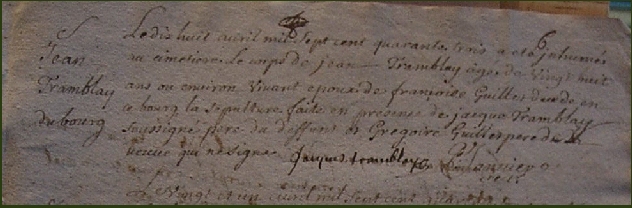 S
Jean
Tramblay
du bourg
Le dix huit avril mil sept cent quarante trois a eté inhumés
au cimetiere le corps de jean Tramblay âgé de vingt huit
ans ou environ vivant epoux de françoise Guilles deurde en
ce bourg la sepulture faite en presence de jacque Tramblay
soussigné pere du deffunt et Gregoire Guilles pere de la
veuve qui ne signe jacques tramblay
Le Vingt et un avril mil sept cent quarante